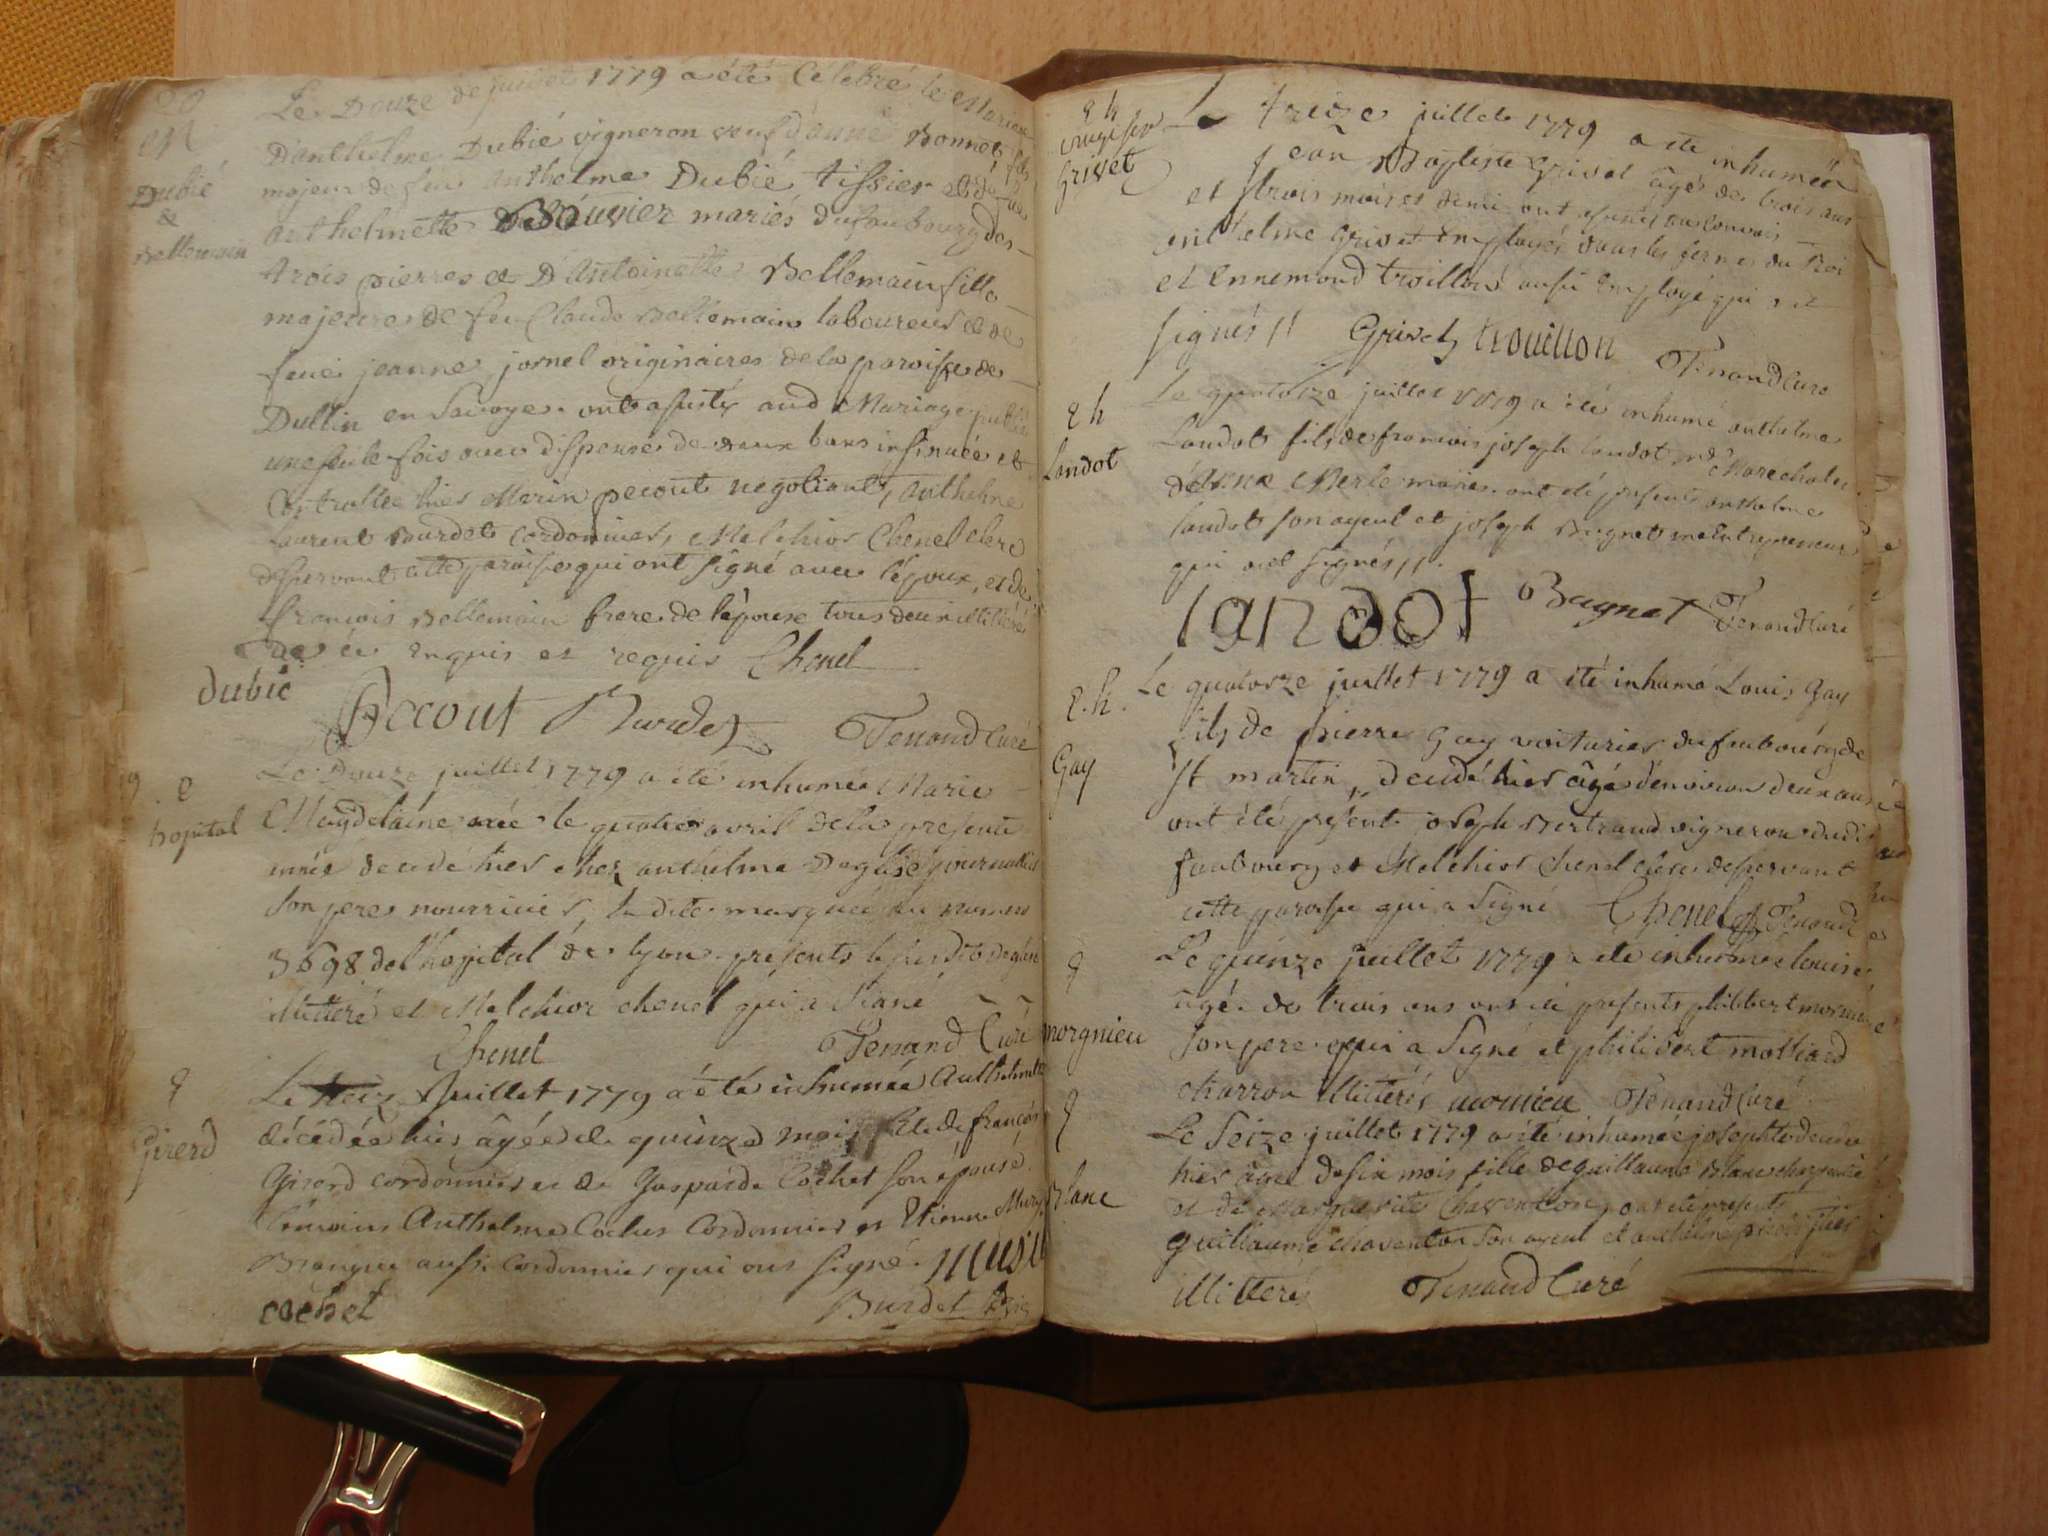 20
M
Dubié
&
Bellemain
Le Douze de juillet 1779 a été Célébré le Mariage
D'anthelme Dubié vigneron veuf d'anne Bonnet fils
majeur de feu anthelme Dubié tissier et de feue
anthelmette Bouvier mariés du faubourg des
trois pierres et D'Antoinette Bellemain fille
majeure de feu Claude Bellemain laboureur et de
feue jeanne jornel originaires de la paroisse de
Dullin en Savoye. ont assisté aud Mariage publié
une seule fois avec dispense de deux bans insinuée et
Controllée hier Marin pecout negotiant, anthelme
laurent Burdet cordonnier, Melchior Chenel clerc
desservant cette paroisse qui ont signé avec l'époux, et de
françois Bellemain frere de l'épouse tous deux illitérés
de ce enquis et requis Chenel
dubié
Pecout Burdet Tenand Curé
hopital
Le Douze juillet 1779 a été inhumée Marie
Magdelaine née le quatre avril de la presente
année decedé hier chez anthelme
son pere nourricier, la dite marquée du numero
3698 de l'hopital de lyon. presents le susdit
illitteré et Melchior chenel qui a signé
Chenel Tenand Curé
Girerd
Le juillet 1779 a été inhumée Anthelmette
décédée hier âgée de quinze mois fille de françois
Girerd cordonnier et de Gasparde Cochet son épouse.
témoins Anthelme Cochet Cordonnier et Etienne
aussi Cordonnier qui ont signé.
cochet Burdet
Grivet
Le treize juillet 1779 a été inhumé
Jean Baptiste Grivet âgé de trois ans
et trois mois et demi ont assisté au convoi
anthelme Grivet Employé dans les fermes du Roi
et Ennemond trouillon aussi Employé qui ont
signés // Grivet trouillon Tenand Curé
Landot
Le quatorze juillet 1779 a été inhumé anthelme
Landot fils de francois joseph landot md Marechal et
d'Anne Merle mariés. ont été presents anthelme
landot son ayeul et joseph Bugnet me entrepreneur
qui ont signés //.
landot Bugnet Tenand Curé
Gay
Le quatorze juillet 1779 a été inhumé Louis Gay
fils de pierre Gay voiturier du faubourg de
St martin, decedé hier âgé d'environ deux ans
ont été présents joseph Bertrand vigneron dudit
faubourg et Melchior Chenel clerc desservant
cette paroisse qui a Signé Chenel Tenand
morgnieu
Le quinze juillet 1779 a été inhumée louise
âgé de trois ans ont été presents philibert
son pere qui a Signé et philibert molliard
charron illitterés Tenand Curé
Blanc
Le Seize juillet 1779 a été inhumée josephte decedée
hier âgée de six mois fille de guillaume Blanc charpentier
et de Marguerite Chaventon, ont été presents
guillaume chaventon son ayeul et anthelme
illitterés Tenand Curé